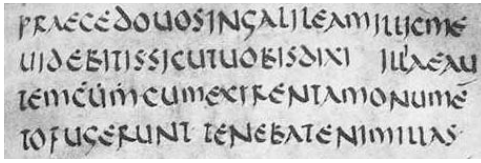 praecedouosingalileamillicme
uidebitissicutuobisdixi illaeau
temcumcumexirentamonumē
tofugerunt tenebatenimillas